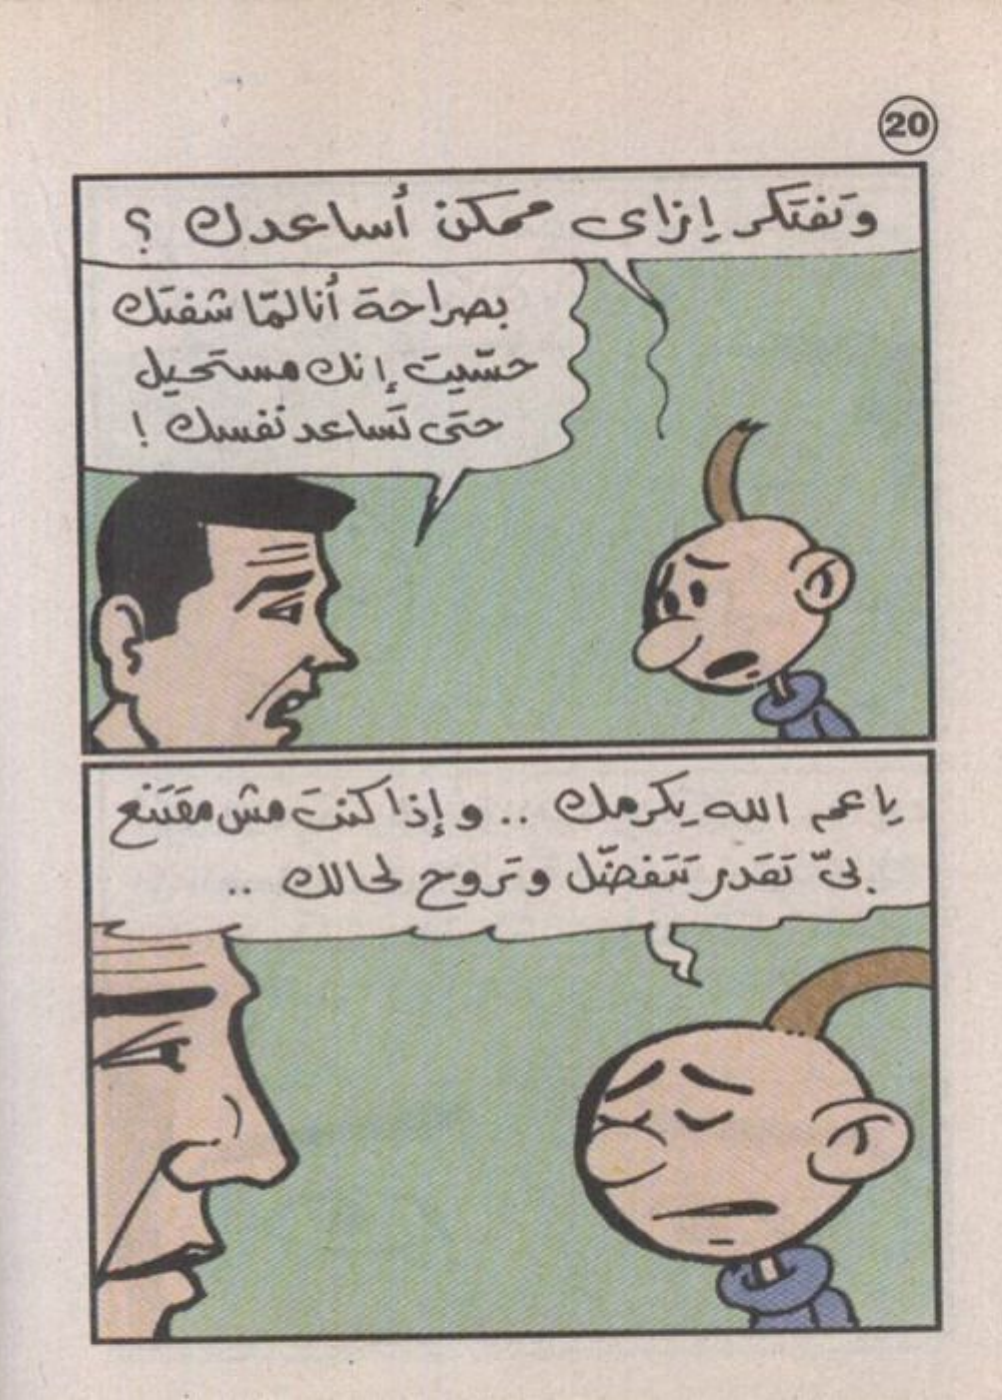 20
وَتفتَكر إزاى ممكن أساعدك ؟
بصراحة أنا لمّا شفتك
حسّيت إنك مستحيل
حتى تساعد نفسك !
يا عم الله يكرمك .. و إذا كنتَ مش مقتَنع
بىّ تقدر تتفضّل وتروح لحالك ..